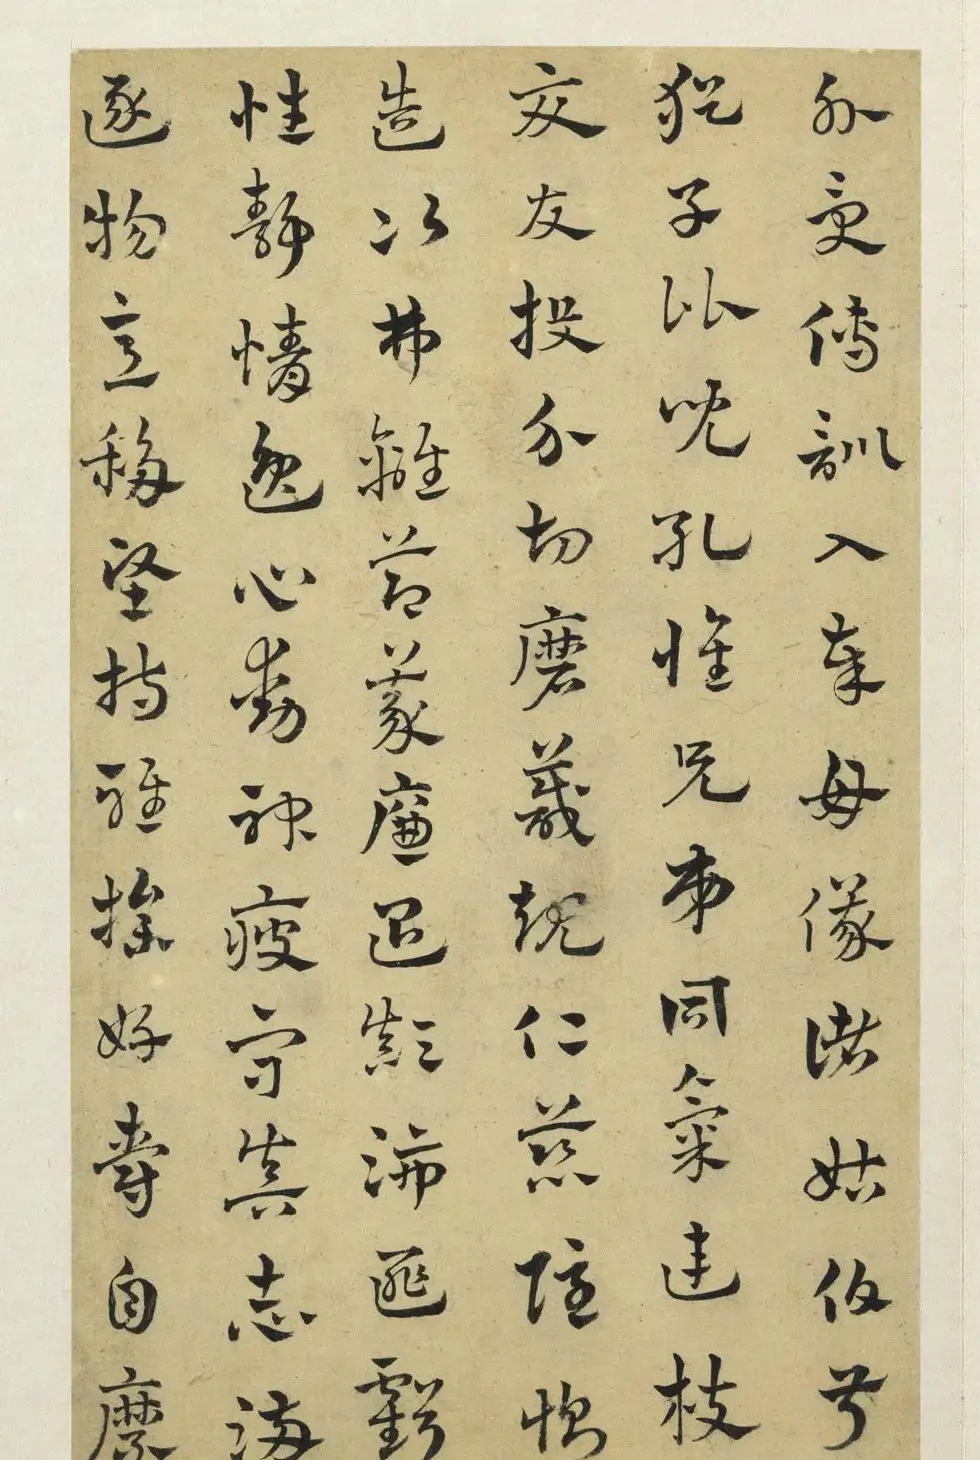 外受傅訓入奉母儀諸姑伯叔
猶子比兒孔懷兄弟同氣連枝
交友投分切磨箴規仁慈隱惻
造次弗離節義廉退顛沛匪虧
性靜情逸心動神疲守真志滿
逐物意移堅持雅操好爵自縻